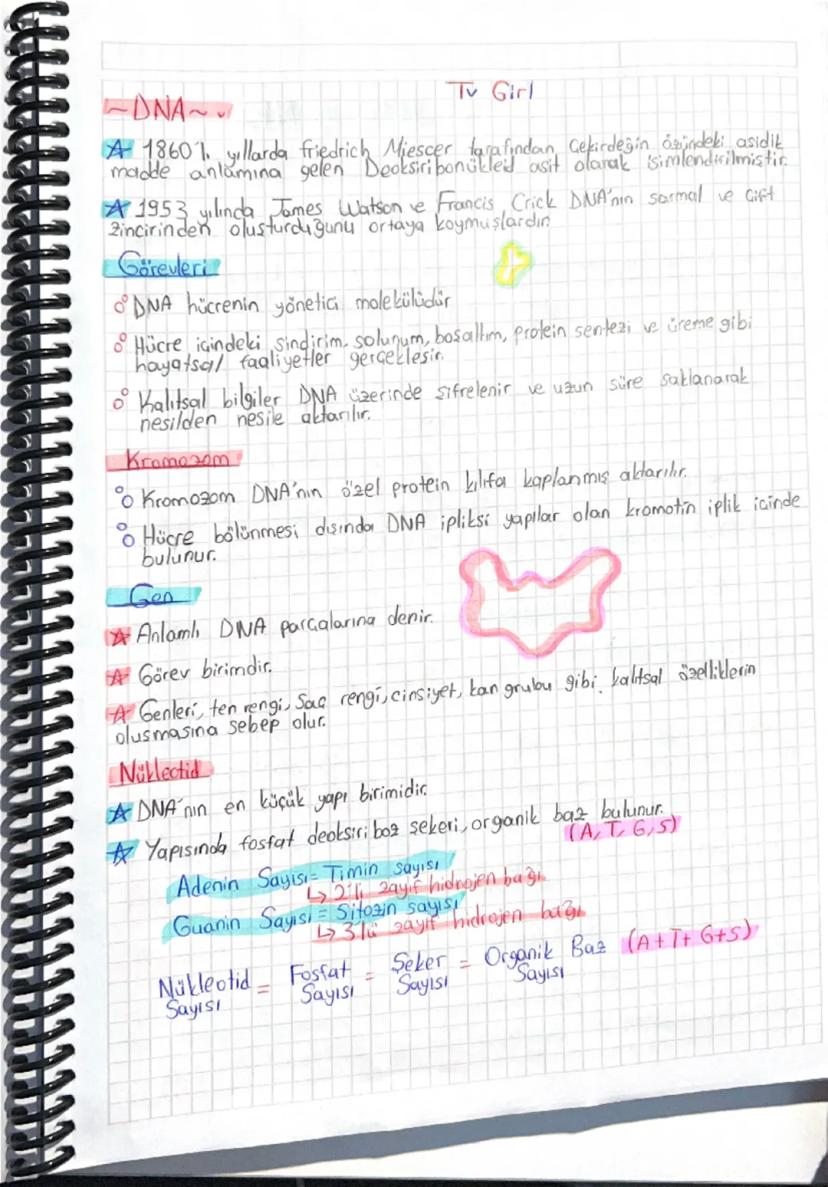 Tv Girl
~DNA~
☆ 1860'lı yıllarda friedrich Miescer tarafından, Çekirdeğin özündeki asidik
madde anlamına gelen Deoksiribonükleid asit olarak isimlendirilmiştir.
☆ 1953 yılında James Watson ve Francis Crick DNA'nın sarmal ve çift
zincirinden oluşturduğunu ortaya koymuşlardır.
Görevleri
DNA hücrenin yönetici molekülüdür
Hücre içindeki sindirim, solunum, boşaltım, protein sentezi ve üreme gibi
hayatsal faaliyetler gerçekleşir.
Kalıtsal bilgiler DNA üzerinde şifrelenir ve uzun süre saklanarak
nesilden nesile aktarılır.
Kromozom
Kromozom DNA'nın özel protein kılıfa kaplanmış aktarılır.
Hücre bölünmesi dışında DNA ipliksi yapılar olan kromotin iplik içinde
bulunur.
Gen
☆ Anlamlı DNA parçalarına denir.
☆ Görev birimdir.
☆ Genleri, ten rengi, Saç rengi, cinsiyet, kan grubu gibi kalıtsal özelliklerin
oluşmasına sebep olur.
Nükleotid
☆ DNA'nın en küçük yapı birimidir.
☆ Yapısında fosfat deoksiriboz şekeri, organik baz bulunur.
(A, T, G, S)
Adenin Sayısı = Timin sayısı
↳ 2'li zayıf hidrojen bağı
Guanin Sayısı = Sitozin sayısı
↳ 3'lü zayıf hidrojen bağı
Nükleotid Sayısı = Fosfat Sayısı = Şeker Sayısı = Organik Baz Sayısı (A+T+G+S)